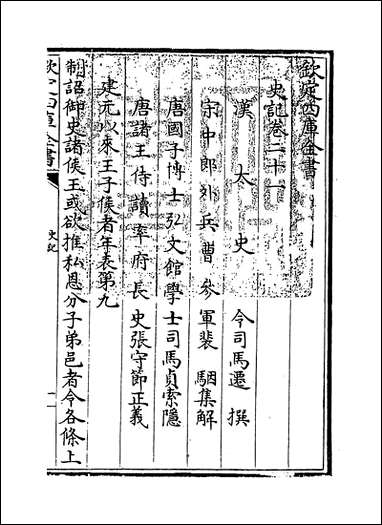 欽定四庫全書
史記卷二十一
漢太史令司馬遷撰
宋中郎外兵曹參軍裴駰集解
唐國子博士弘文館學士司馬貞索隱
唐諸王侍讀率府長史張守節正義
建元以來王子侯者年表第九
制詔御史諸侯王或欲推私恩分子弟邑者令各條上
欽定四庫全書
史記